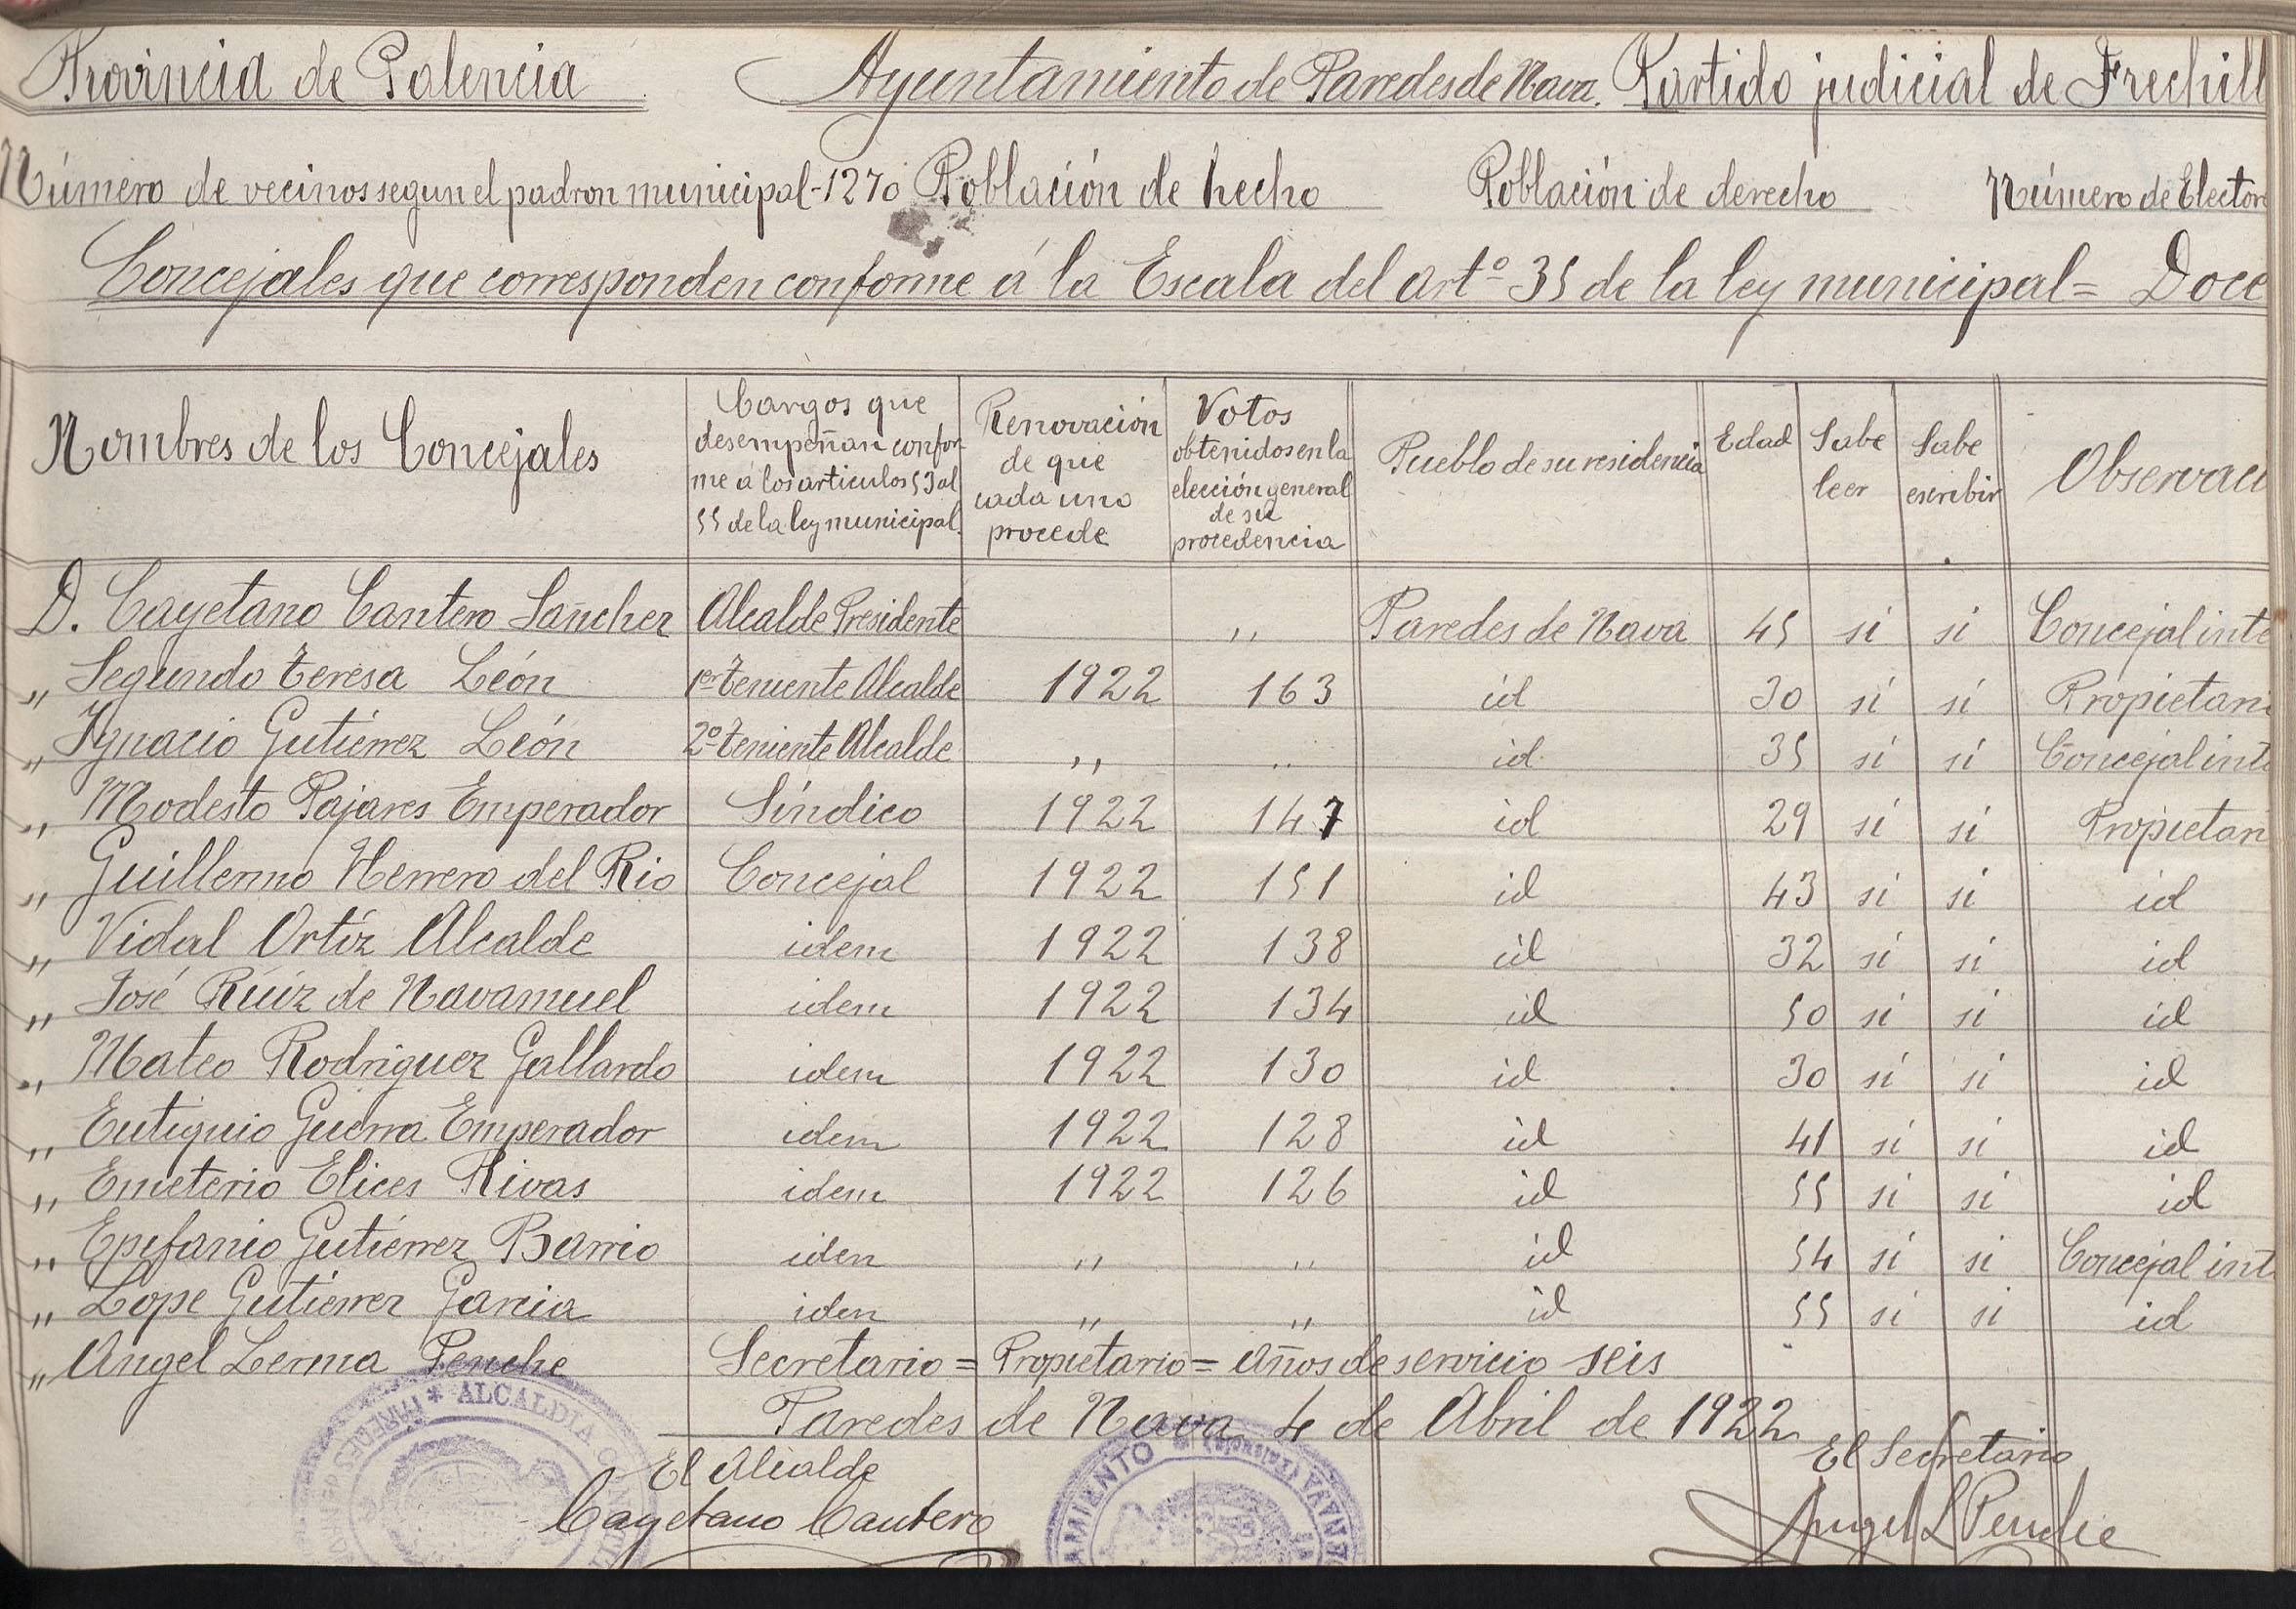 Provincia de Palencia Ayuntamiento de Paredes de Nava. Partido judicial de Frechill
Número de vecinos segun el padron municipal-1270 Población de hecho Población de derecho Número de Elector
Concejales que corresponden conforme á la Escala del artº 35 de la ley municipal= Doce
Nombres de los Concejales
Cargos que
desempeñan confor
me á los articulos 53 al
55 de la ley municipal.
Renovación
de que
cada uno
procede
Votos
obtenidos en la
elección general
de su
procedencia
Pueblo de su residencia
Edad
Sabe
leer
Sabe
escribir
Observaci
D. Cayetano Cantero Sánchez Alcalde Presidente ,, Paredes de Nava 45 si si Concejal inte
,, Segundo Teresa León 1er teniente Alcalde 1922 163 id 30 si si Propietari
,, Ignacio Gutiérrez León 2º teniente Alcalde ,, ,, id 35 si si Concejal inte
,, Modesto Pajares Emperador Síndico 1922 147 id 29 si si Propietari
,, Guillermo Herrero del Rio Concejal 1922 151 id 43 si si id
,, Vidal Ortíz Alcalde idem 1922 138 id 32 si si id
,, José Rúiz de Navamuel idem 1922 134 id 50 si si id
,, Mateo Rodriguez Gallardo idem 1922 130 id 30 si si id
,, Eutiquio Guerra Emperador idem 1922 128 id 41 si si id
,, Emeterio Elices Rivas idem 1922 126 id 55 si si id
,, Epifanio Gutiérrez Barrio iden ,, ,, id 54 si si Concejal int
,, Lope Gutierrez Garcia iden ,, ,, id 55 si si id
,, Angel Lerma Penche Secretario = Propietario = años de servicio seis
Paredes de Nava 4 de Abril de 1922
El Alcalde
Cayetano Cantero
El Secretario
Angel L Penche
PAREDES de NAVA * ALCALDIA
AMIENTO